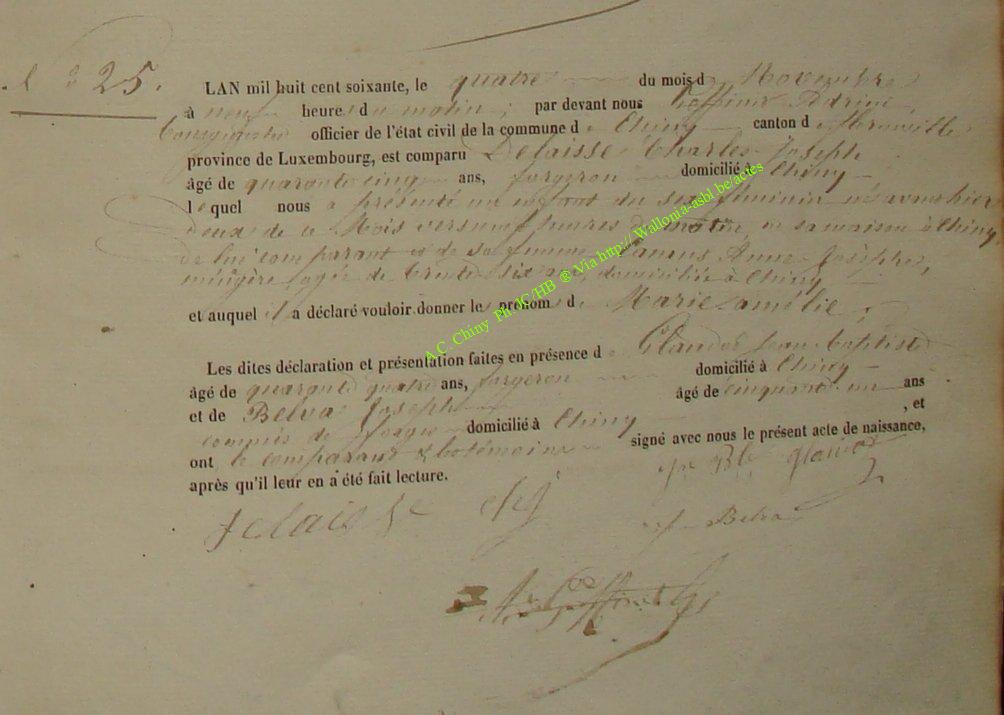 25.
LAN mil huit cent soixante, le quatre du mois d Novembre
à neuf heures du matin, par devant nous Goffinet Adrien,
Bourgmestre officier de l'état civil de la commune de Chiny canton de florenville
province de Luxembourg, est comparu Delaisse Charles Joseph
âgé de quarante cinq ans, forgeron domicilié à Chiny
lequel nous a présenté un enfant du sexe féminin né avant hier
deux de ce Mois vers neuf heures du matin, en sa maison à Chiny
de lui comparant et de sa femme Anne Josèphe,
ménagère agée de trente six ans, domiciliée à Chiny
et auquel il a déclaré vouloir donner le prénom de Marie amélie;
Les dites déclaration et présentation faites en présence de Jean baptiste
âgé de quarante quatre ans, forgeron domicilié à Chiny
et de Belva Joseph âgé de cinquante un ans
commis de forges domicilié à Chiny , et
ont le comparant & les témoins signé avec nous le présent acte de naissance,
après qu'il leur en a été fait lecture.
Delaisse chj
Belva
A. Goffinet
A.C. Chiny Ph JC/HB ® Via http://Wallonia-asbl.be/actes